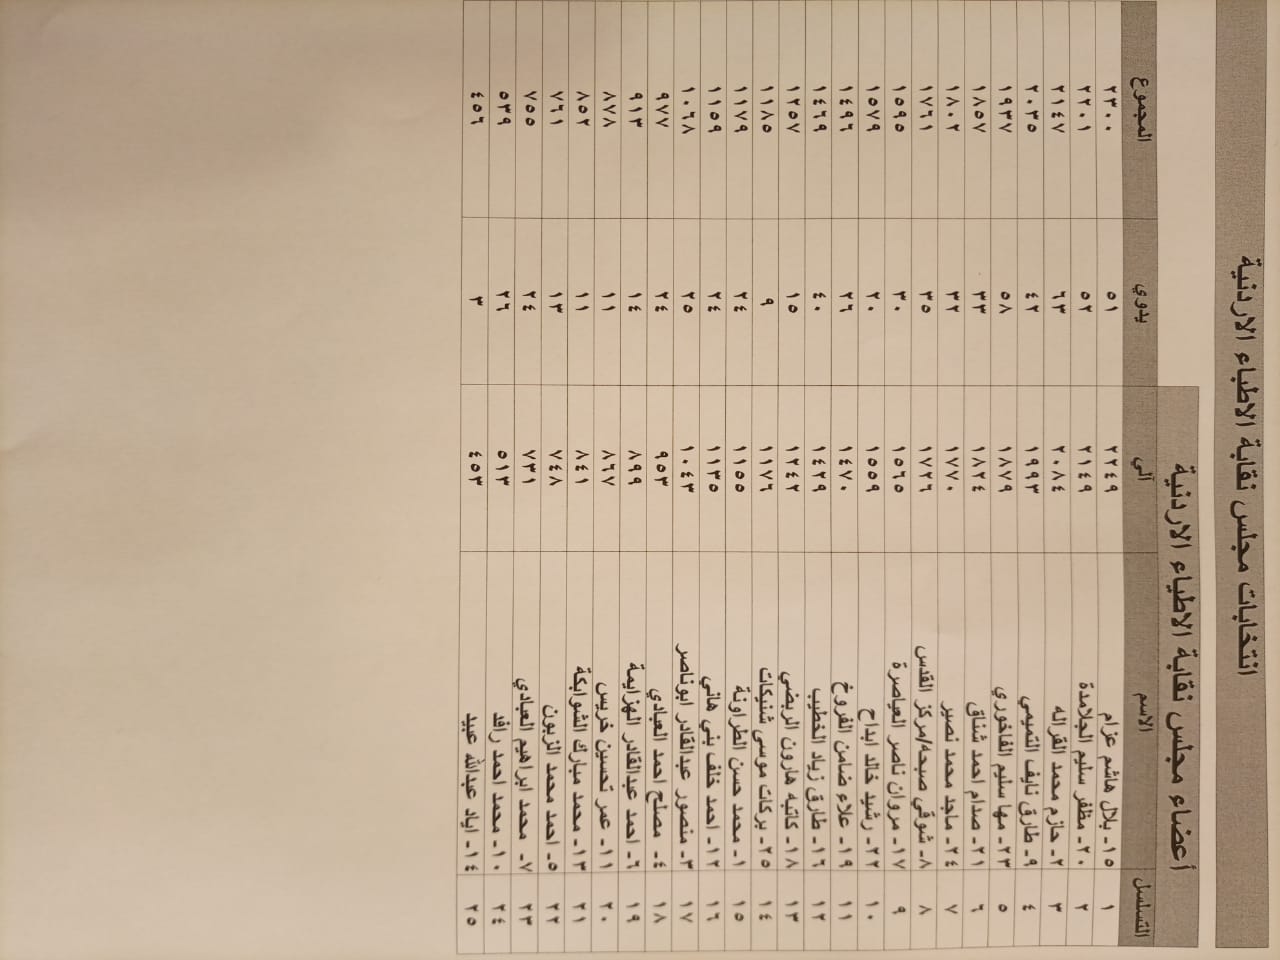 انتخابات مجلس نقابة الاطباء الاردنية
أعضاء مجلس نقابة الاطباء الاردنية
التسلسل الاسم آلي يدوي المجموع
١ ١٥- بلال هاشم عزام ٢٢٤٩ ٥١ ٢٣٠٠
٢ ٢٠- مظفر سليم الجلامدة ٢١٤٩ ٥٢ ٢٢٠١
٣ ٢- حازم محمد القراله ٢٠٨٤ ٦٣ ٢١٤٧
٤ ٩- طارق نايف التميمي ١٩٩٣ ٤٢ ٢٠٣٥
٥ ٢٣- مها سليم الفاخوري ١٨٧٩ ٥٨ ١٩٣٧
٦ ٢١- صدام احمد شناق ١٨٢٤ ٣٣ ١٨٥٧
٧ ٢٤- ماجد محمد نصير ١٧٧٠ ٣٢ ١٨٠٢
٨ ٨- شوقي صبحه/مركز القدس ١٧٢٦ ٣٥ ١٧٦١
٩ ١٧- مروان ناصر العياصرة ١٥٦٥ ٣٠ ١٥٩٥
١٠ ٢٢- رشيد خالد ابداح ١٥٥٩ ٢٠ ١٥٧٩
١١ ١٩- علاء ضامن الفروخ ١٤٧٠ ٢٦ ١٤٩٦
١٢ ١٦- طارق زياد الخطيب ١٤٢٩ ٤٠ ١٤٦٩
١٣ ١٨- كاتبه هارون الربضي ١٢٤٢ ١٥ ١٢٥٧
١٤ ٢٥- بركات موسى شنيكات ١١٧٦ ٩ ١١٨٥
١٥ ١- محمد حسن الطراونة ١١٥٥ ٢٤ ١١٧٩
١٦ ١٢- احمد خلف بني هاني ١١٣٥ ٢٤ ١١٥٩
١٧ ٣- منصور عبدالقادر ابوناصر ١٠٤٣ ٢٥ ١٠٦٨
١٨ ٤- مصلح احمد العبادي ٩٥٣ ٢٤ ٩٧٧
١٩ ٦- احمد عبدالقادر الهزايمة ٨٩٩ ١٤ ٩١٣
٢٠ ١١- عمر تحسين خريس ٨٦٧ ١١ ٨٧٨
٢١ ١٣- محمد مبارك الشوابكة ٨٤١ ١١ ٨٥٢
٢٢ ٥- احمد محمد الزبون ٧٤٨ ١٣ ٧٦١
٢٣ ٧- محمد ابراهيم العبادي ٧٣١ ٢٤ ٧٥٥
٢٤ ١٠- محمد احمد رافد ٥١٣ ٢٦ ٥٣٩
٢٥ ١٤- اياد عبدالله عبيد ٤٥٣ ٣ ٤٥٦